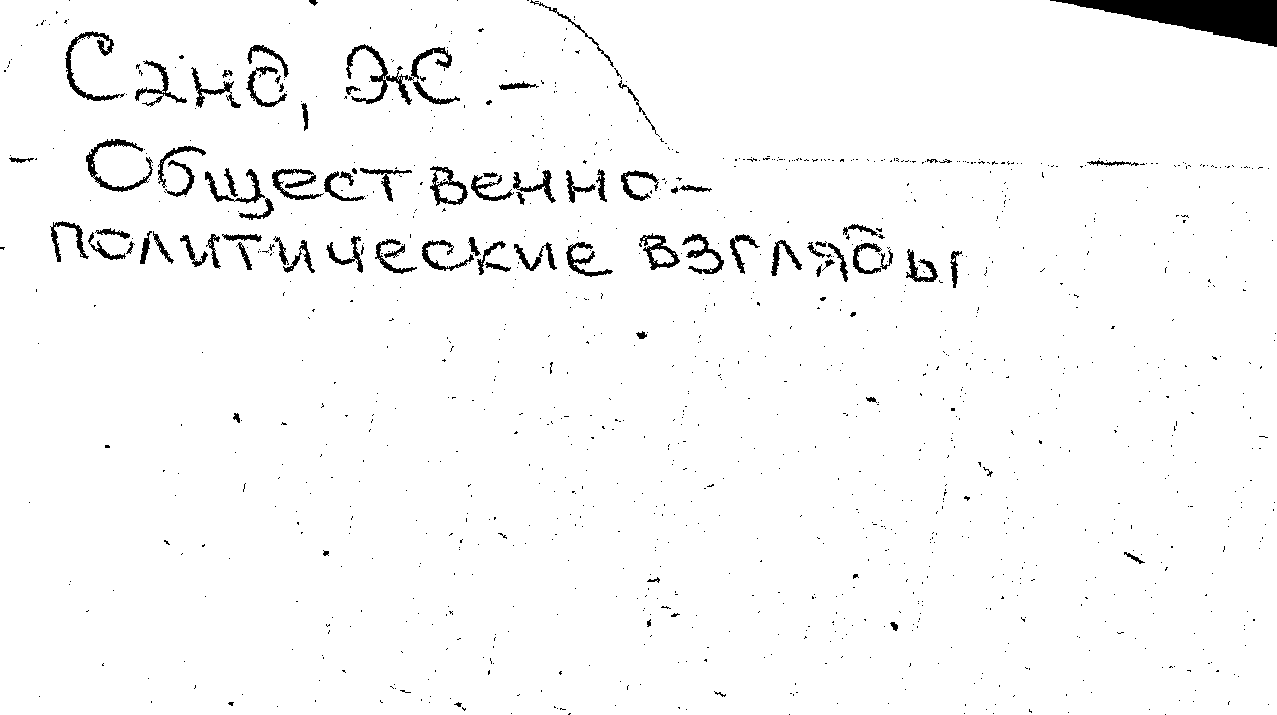 Санд, Ж. –
– Общественно-
политические взгляды